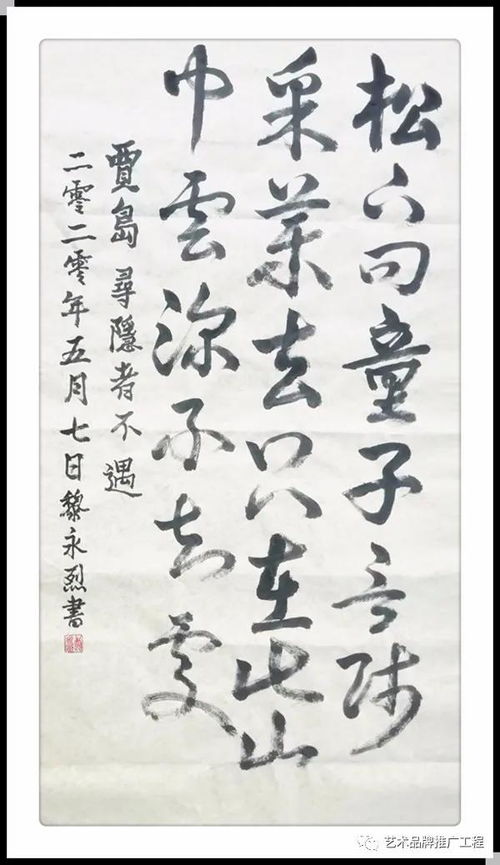 松下问童子言师
采药去只在此山
中雲深不知處
賈島 尋隱者不遇
二零二零年五月七日黎永烈書
艺术品牌推广工程